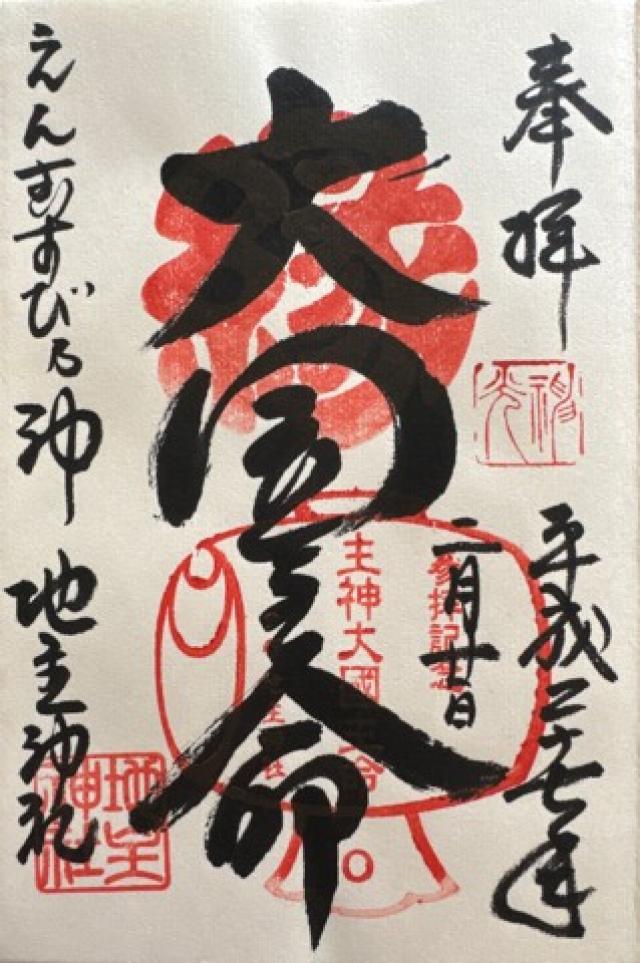 奉拝
平成二十七年
二月廿日
参拝記念
主神大國主命
地主神社
大国主命
えんむすびの神 地主神社
地主神社